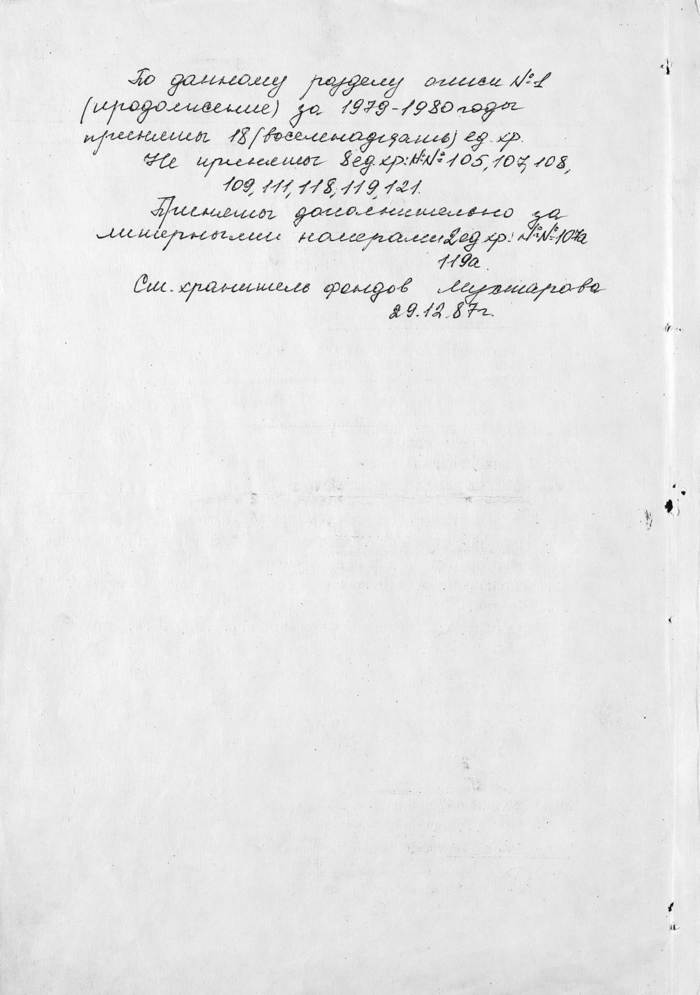 По данному разделу описи №1
(продолжение) за 1979-1980 годы
приняты 18 (восемнадцать) ед. хр.
Не приняты 8 ед. хр.: №№ 105, 107, 108,
109, 111, 118, 119, 121.
Приняты дополнительно за
литерными номерами 2 ед. хр.: №№ 107а
119а.
Ст. хранитель фондов Мухтарова
29.12.87г.